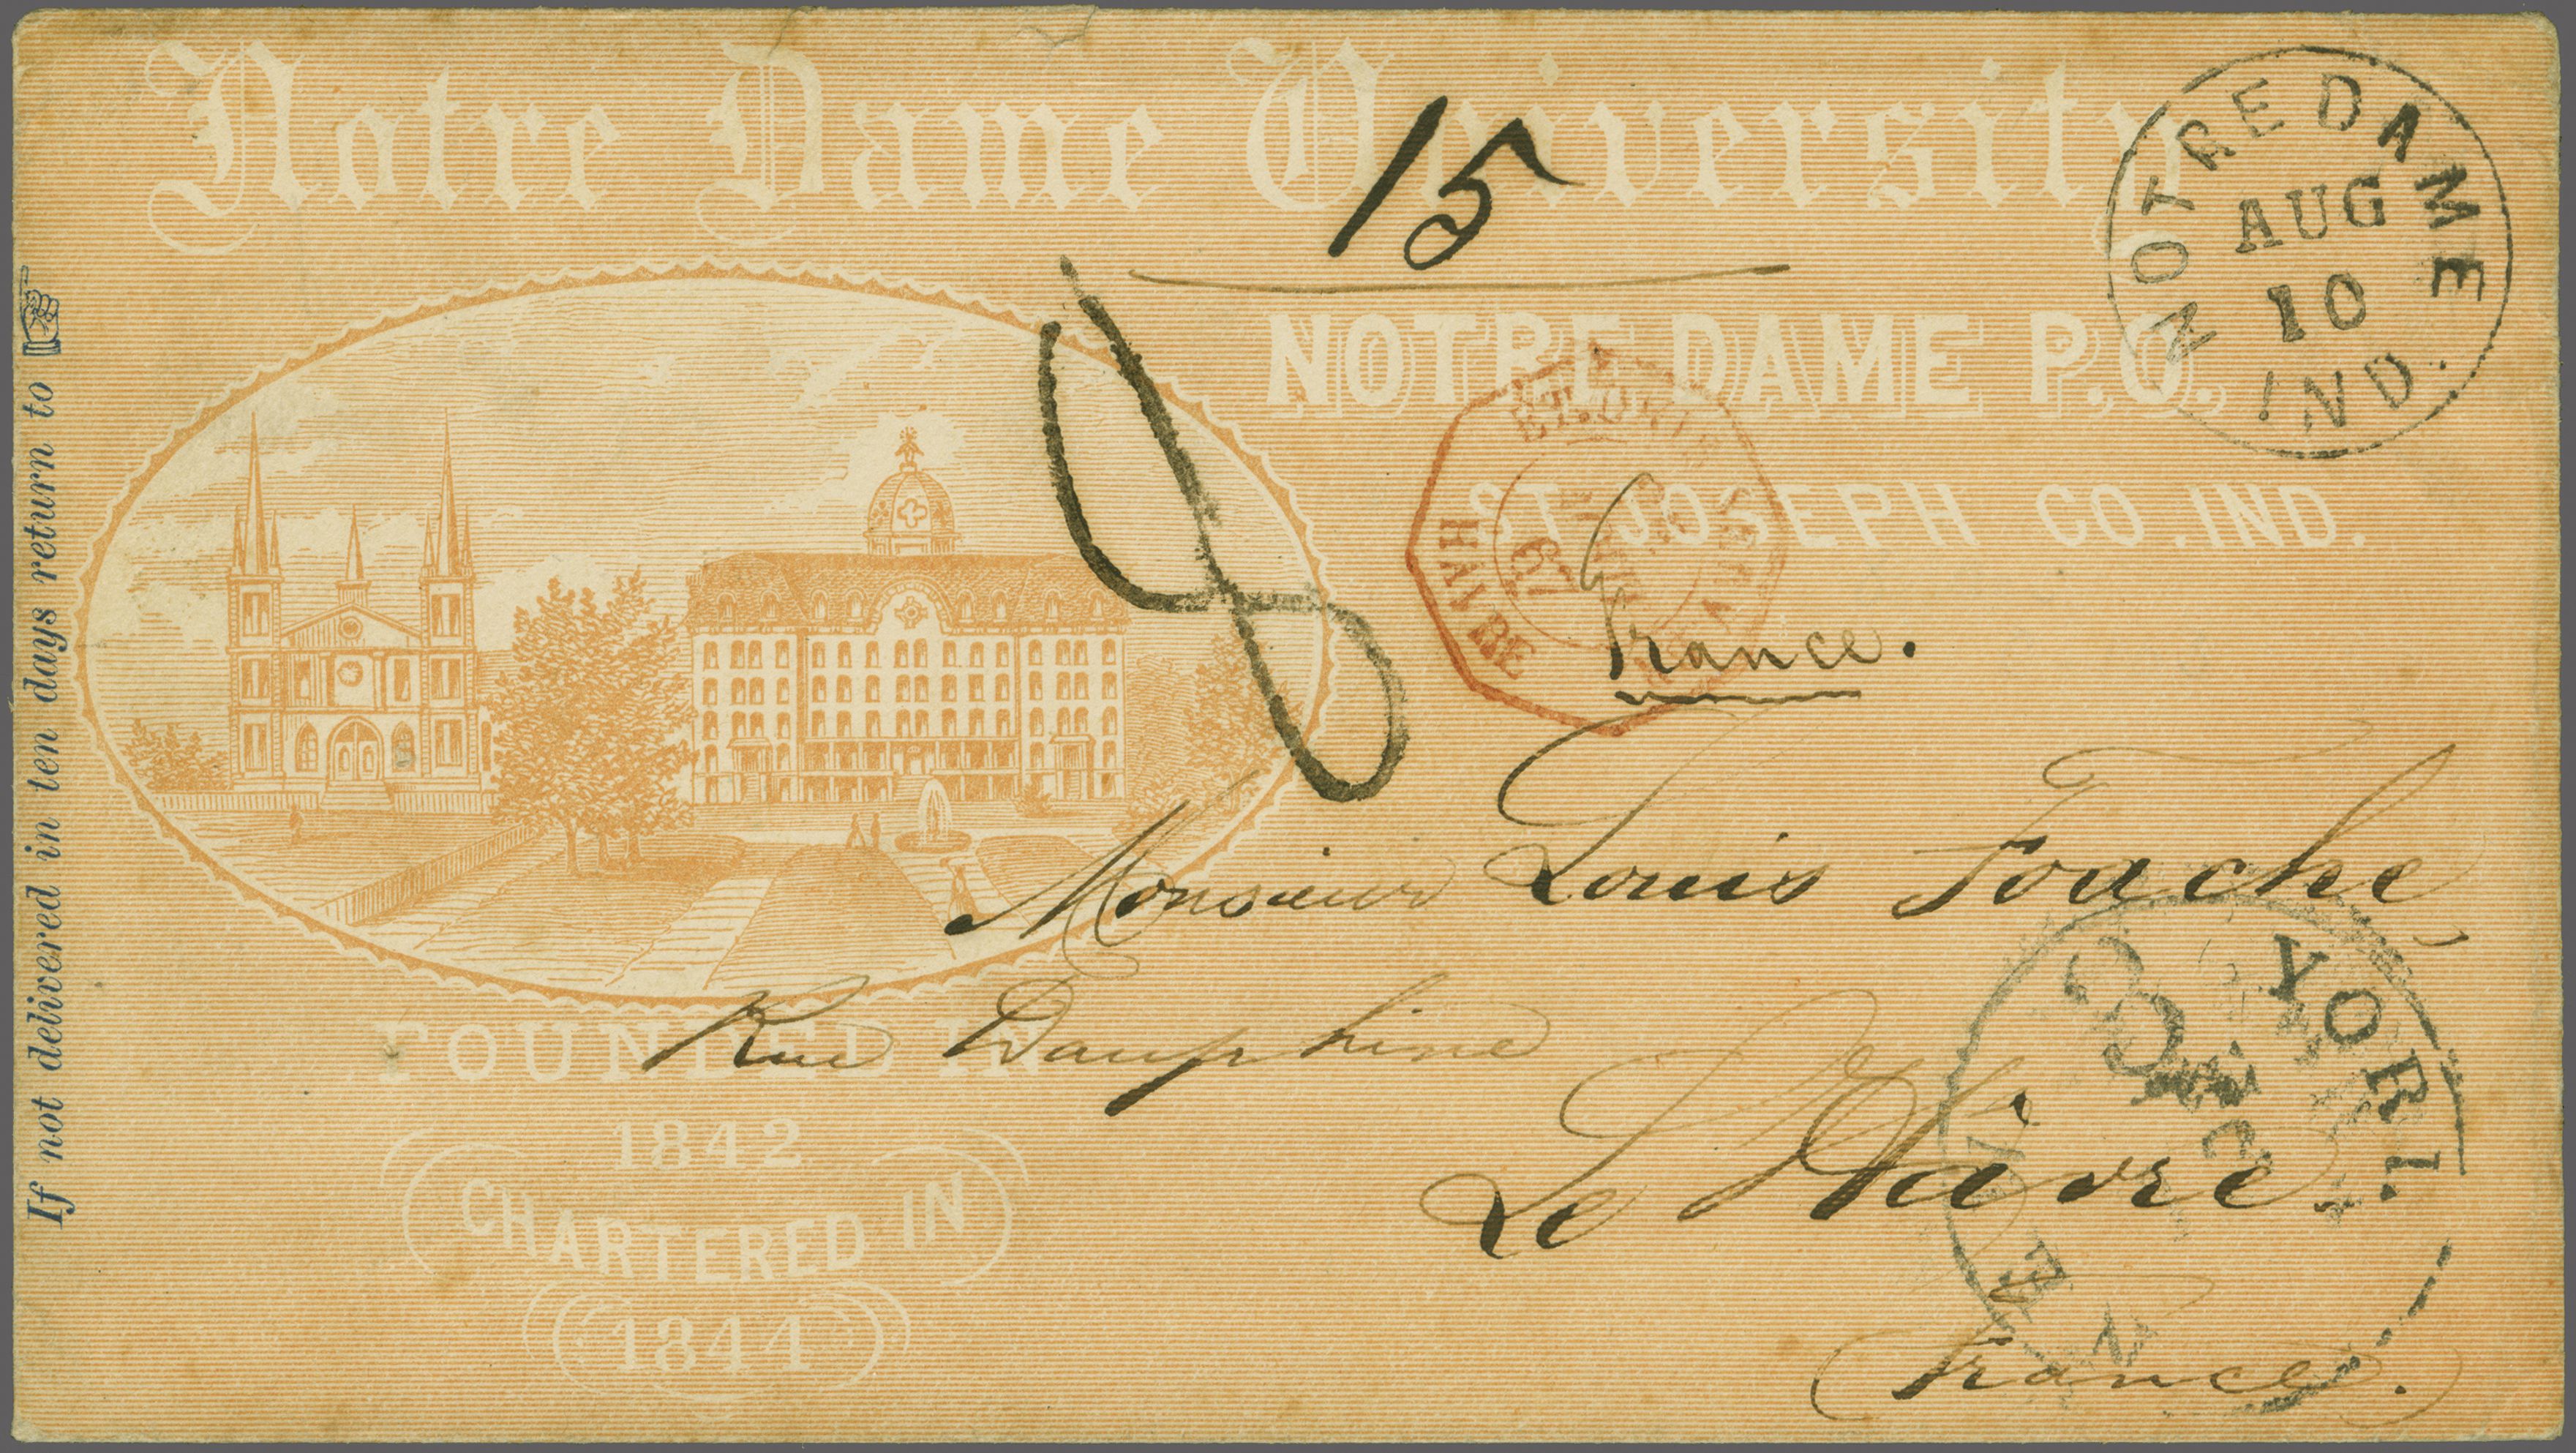 Notre Dame University
15
NOTRE DAME P.O.
ST. JOSEPH CO. IND.
NOTRE DAME
AUG
10
IND.
If not delivered in ten days return to
8
ET. UNIS
HAVRE
67
France.
Monsieur Louis Foache,
Rue Dauphine
Le Havre
France.
FOUNDED IN
1842
CHARTERED IN
1844
NEW YORK